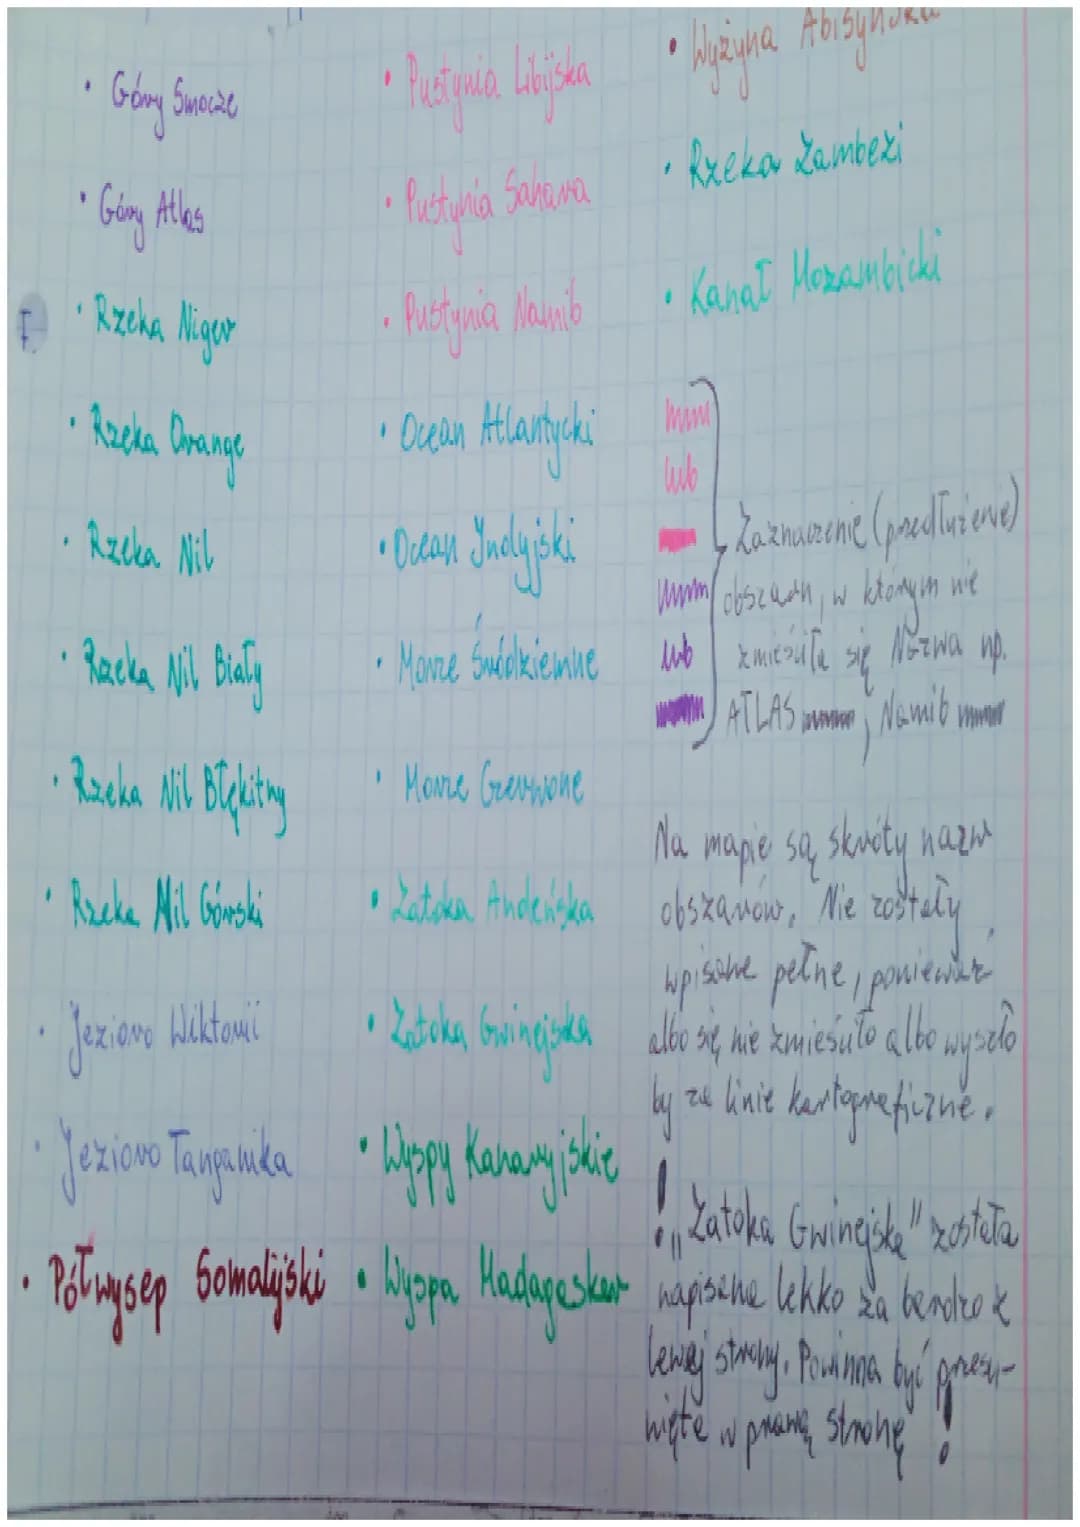 • Góry Smocze
• Góry Atlas
• Rzeka Niger
• Rzeka Orange
• Rzeka Nil
• Rzeka Nil Biały
• Rzeka Nil Błękitny
• Rzeka Nil Górski
• Jezioro Wiktorii
• Jezioro Tanganika
• Półwysep Somalijski
• Pustynia Libijska
• Pustynia Sahara
• Pustynia Namib
• Ocean Atlantycki
• Ocean Indyjski
• Morze Śródziemne
• Morze Czerwone
• Zatoka Andeńska
• Zatoka Gwinejska
• Wyspy Kanaryjskie
• Wyspa Madagaskar
• Wyżyna Abisyńska
• Rzeka Zambezi
• Kanał Mozambicki
lub
lub
Zaznaczenie (przedłużenie)
obszaru, w którym nie
zmieściła się Nazwa np.
ATLAS, Namib
Na mapie są skróty nazw
obszarów. Nie zostały
wpisane pełne, ponieważ
albo się nie zmieściło albo wyszło
by za linie kartograficzne.
! „Zatoka Gwinejska" została
napisana lekko za bardzo z
lewej strony. Powinna być przesu-
nięta w prawą stronę !